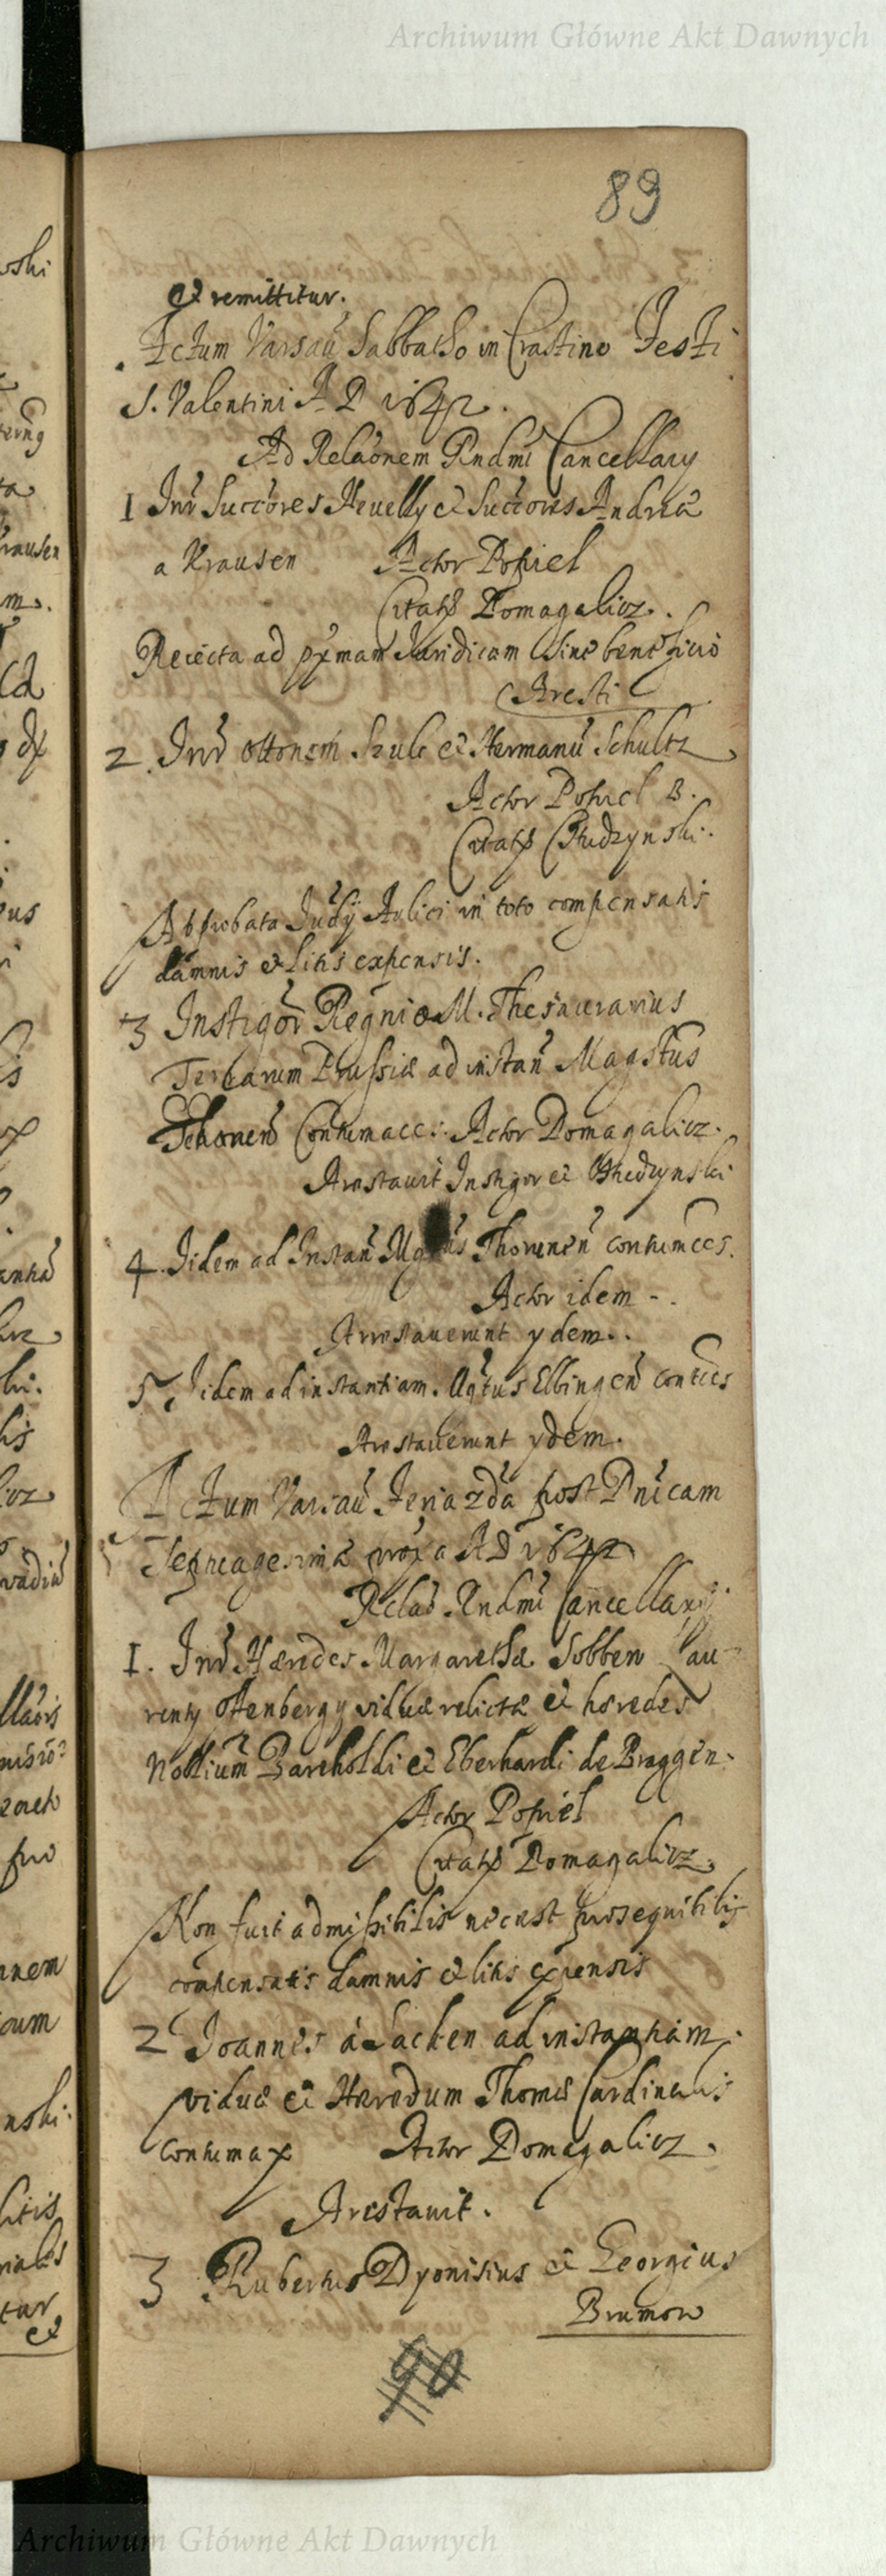 Archiwum Główne Akt Dawnych
89
et remittitur.
Actum Varsau Sabbatho in Crastino Festi
S. Valentini A D 1642.
Ad Relaonem Rndmi Cancellary
1 Intr Succores Heuelly et Succores Andreae
a Krausen Actor Popiel
Citats Domagalicz.
Reiecta ad pxmam Juridicam Sine beneficio
Aresti
2. Intr Ottonem Szulc et Hermanu Schultz
Actor Popiel B.
Citats Studzynski.
Approbata Judy Aulici in toto compensatis
damnis et litis expensis.
3 Instigor Regni et M. Thesaurarius
Terrarum Prussiae ad instan Magstus
Contumacc: Actor Domagalicz.
Arestauit Instigor et Studzynski
4. Iidem ad Instan Thorunen contumccs.
Actor idem -.
Arrestauerunt ydem..
5 Iidem ad instantiam. Mgtus Elbingen contccs
Arestauerunt ydem.
Actum Varsau Feria 2da post Dnicam
Septuagesimae proxa A D 1642
Relao Rndmi Cancellarij.
1. Intr Haeredes Margarethae Sobben Lau-
renty Offenbergy viduae relictae et haeredes
Nobilium Bartholdi et Eberhardi de Bruggen.
Actor Popiel
Citats Domagalicz.
Non fuit admissibilis nec est prosequibilis
compensatis damnis et litis expensis
2 Joannes à Sacken ad instantiam.
viduae et Haeredum Thomae Cardinalis
contumax Actor Domagalicz.
Arestauit.
3 Rubertus Dyonisius et Georgius
Brumow
90
Archiwum Główne Akt Dawnych